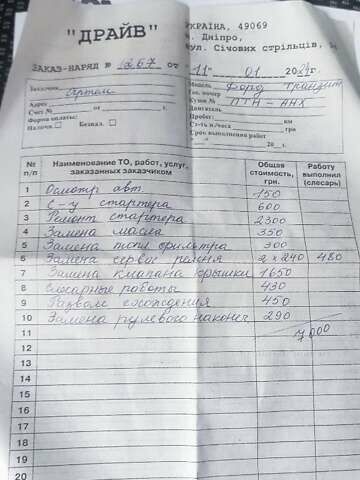 "ДРАЙВ"
УКРАЇНА, 49069
м. Дніпро,
вул. Січових стрільців,
ЗАКАЗ-НАРЯД № 1267 от "11" 01 2024г.
Заказчик Артем
Модель Форд транзит
Адрес
Гос. номер
Счет № от г.
Кузов № ПТН - АНХ
Двигатель
Форма оплаты:
Пробег: км
Налич. Безнал.
Ст-ть н/часа грн.
Срок выполнения работ
" " 20 г.
№ п/п Наименование ТО, работ, услуг, заказанных заказчиком Общая стоимость, грн. Работу выполнил (слесарь)
1 Осмотр авт 150
2 С-у стартера 600
3 Ремонт стартера 2300
4 Замена масла 350
5 Замена топл фильтра 300
6 Замена сервос ремня 2 х 240 480
7 Замена клапана крышки 1650
8 Слесарные работы 430
9 Развал схождения 450
10 Замена рулевого наконеч 290
11 7000
12
13
14
15
16
17
18
19
20